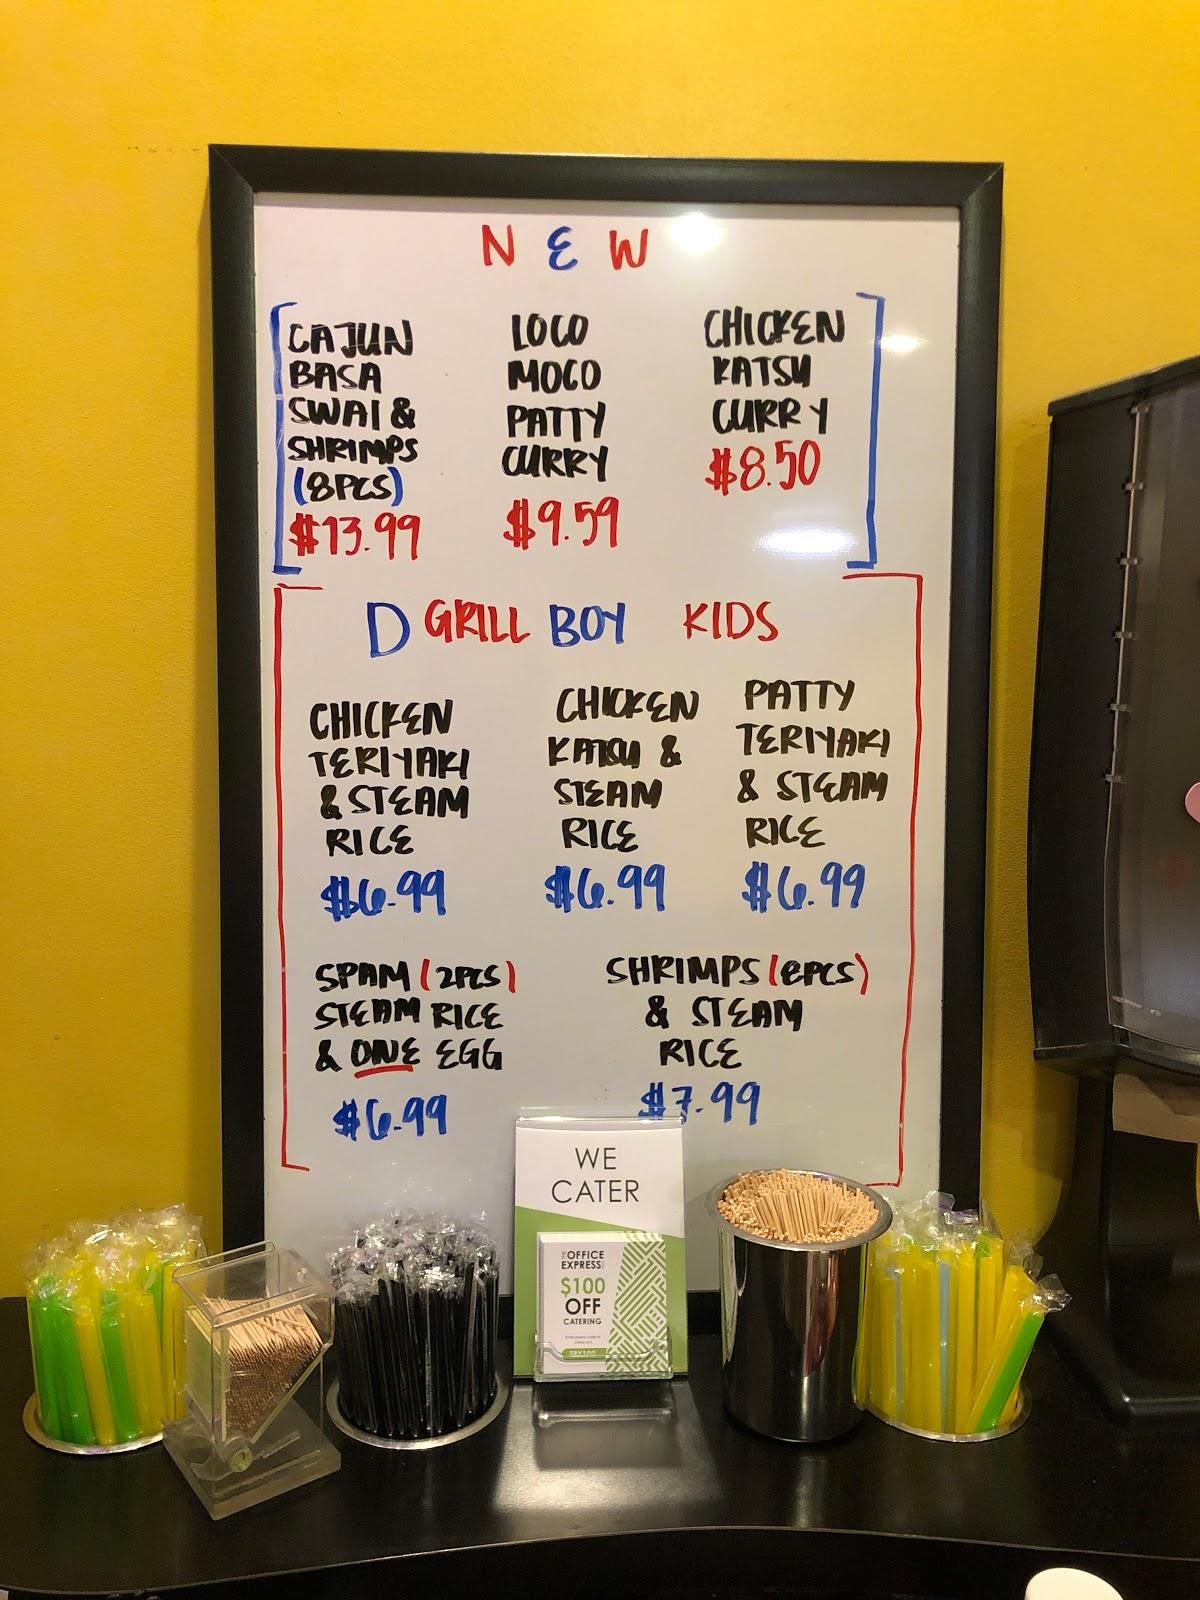 NEW
CAJUN
BASA
SWAI &
SHRIMPS
(8PCS)
$13.99
LOCO
MOCO
PATTY
CURRY
$9.59
CHICKEN
KATSU
CURRY
$8.50
D GRILL BOY KIDS
CHICKEN
TERIYAKI
& STEAM
RICE
$6.99
CHICKEN
KATSU &
STEAM
RICE
$6.99
PATTY
TERIYAKI
& STEAM
RICE
$6.99
SPAM (2PCS)
STEAM RICE
& ONE EGG
$6.99
SHRIMPS (8PCS)
& STEAM
RICE
$7.99
WE
CATER
THE
OFFICE
EXPRESS
$100
OFF
CATERING